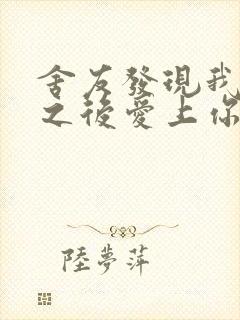 舍友發現我
之後愛上你
陸夢萍